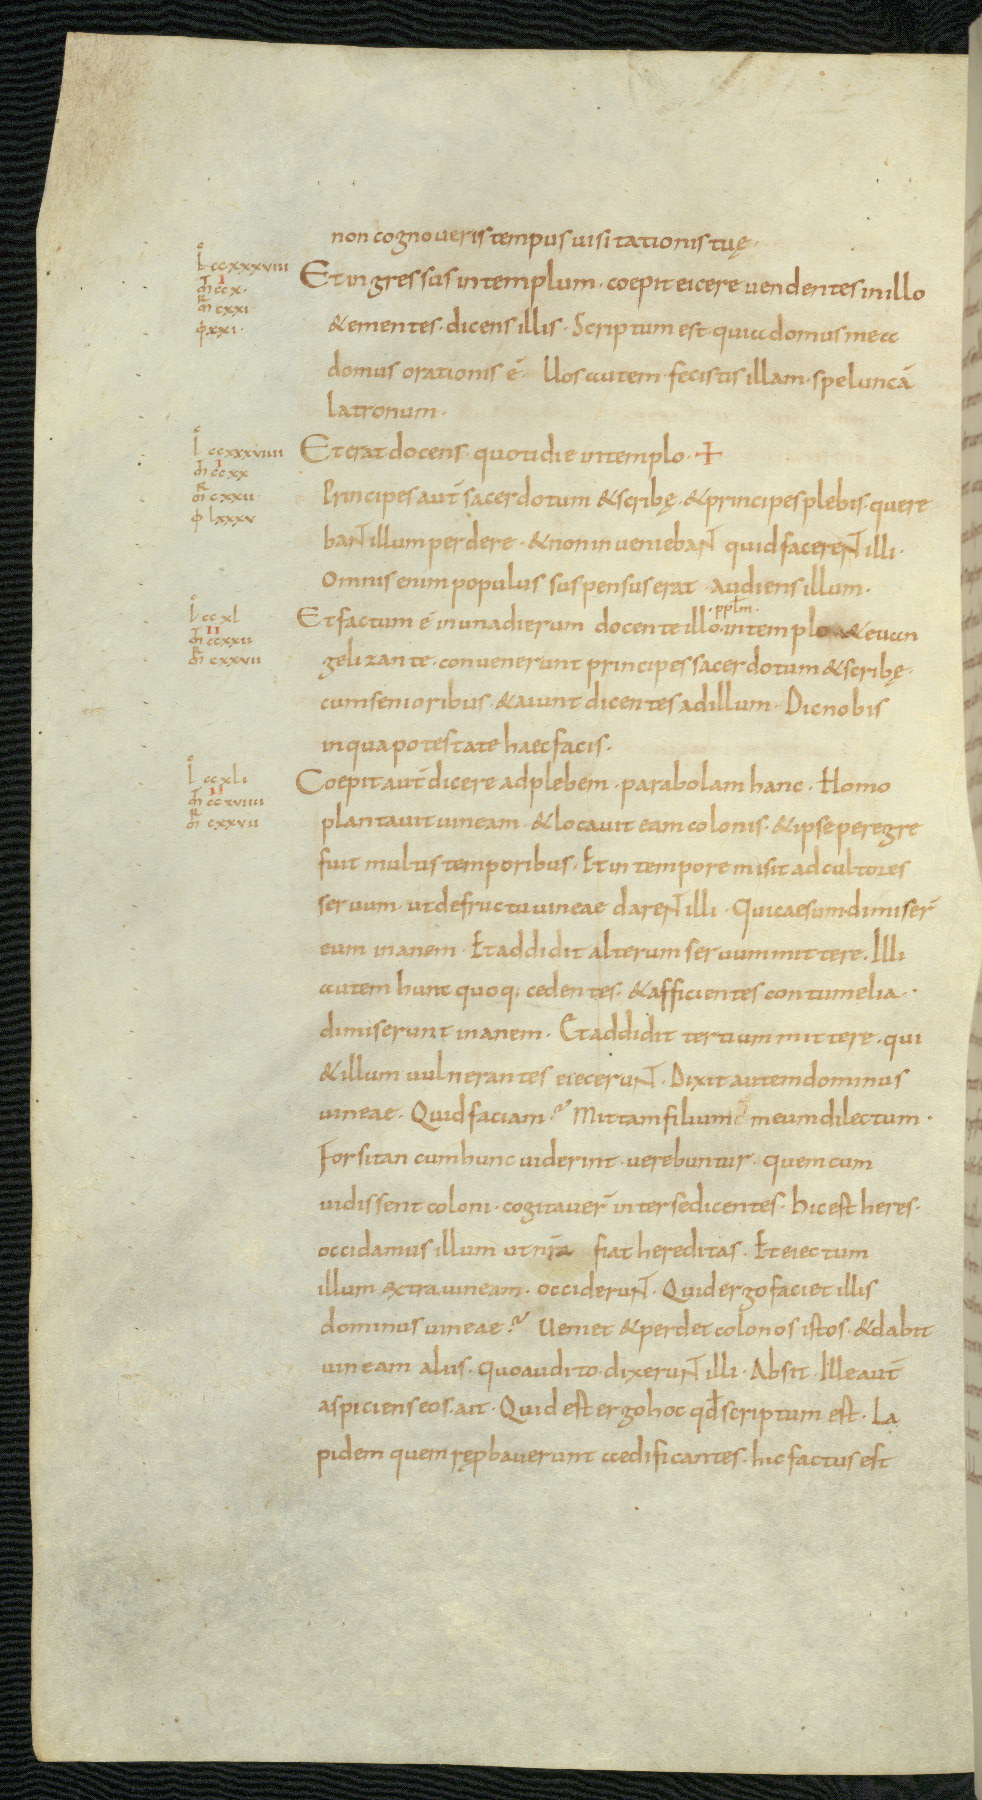 non cognoueris tempus uisitationis tuę·
L ccxxxviii
Et ingressus in templum· coepit eicere uendentes in illo
I
M ccx·
MR cxxi
& ementes· dicens illis· Scriptum est· quia domus mea
φ xxi·
domus orationis ē Uos autem fecistis illam· speluncā
latronum·
L ccxxxviiii
Et erat docens· quotidie in templo· +
I
M ccxx
MR cxxii
Principes aut̄ sacerdotum & scribę· & principes plebis· quere
φ lxxxv
baNT illum perdere· & non inueniebaNT quid facereNT illi·
Omnis enim populus suspensus erat· audiens illum·
L ccxl
·pplm̄·
Et factum ē in una dierum docente illo· in templo & euan
II
M ccxxii
MR cxxvii
gelizante· conuenerunt principes sacerdotum & scribę·
cum senioribus· & aiunt dicentes ad illum· Dic nobis
in qua potestate haec facis·
L ccxli
Coepit aut̄ dicere ad plebem· parabolam hanc· Homo
II
M ccxviiii
MR cxxvii
plantauit uineam· & locauit eam colonis· & ipse peregre
fuit multis temporibus· Et in tempore misit ad cultores
seruum· ut de fructu uineae dareNT illi· Qui caesum· dimiser̄
eum inanem· Et addidit alterum seruum mittere· Illi
autem hunc quoq; cedentes· & afficientes contumelia·
dimiserunt inanem· Et addidit tertium mittere· qui
& illum uulnerantes eieceruNT· Dixit autem dominus
uineae· Quid faciam? Mittam filium meum dilectum·
Forsitan cum hunc uiderint· uerebuntur· quem cum
uidissent coloni· cogitauer̄ inter se dicentes· hic est heres·
occidamus illum ut nr̄a fiat hereditas· Et eiectum
illum extra uineam· occideruNT· Quid ergo faciet illis
dominus uineae? Ueniet & perdet colonos istos· & dabit
uineam aliis· quo audito· dixeruNT illi· Absit· Ille aut̄
aspiciens eos· ait· Quid est ergo hoc qd̄ scriptum est· La
pidem quem rep̱bauerunt aedificantes· hic factus est